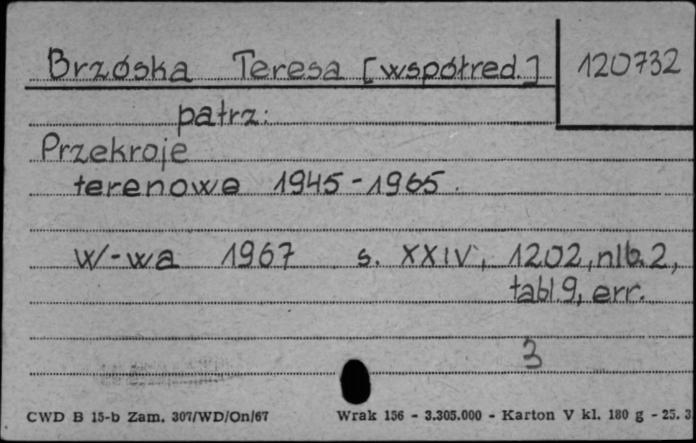 Brzóska Teresa [współred.] 120732
patrz:
Przekroje
terenowe 1945-1965.
W-wa 1967 s. XXIV, 1202, nlb. 2,
tabl. 9, err.
3
CWD B 15-b Zam. 307/WD/On/67 Wrak 156 - 3.305.000 - Karton V kl. 180 g - 25. 3